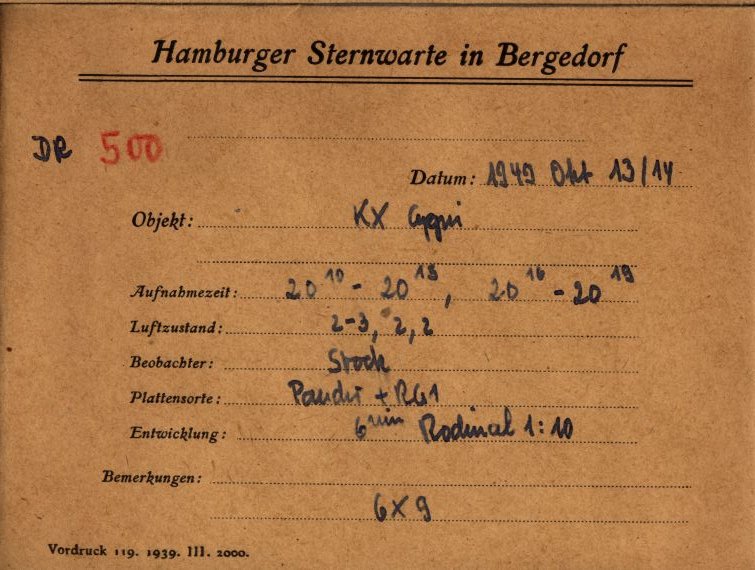 Hamburger Sternwarte in Bergedorf
DR 500
Datum: 1949 Okt 13/14
Objekt: KX Cygni
Aufnahmezeit: 20 10 - 20 13, 20 16 - 20 19
Luftzustand: 2-3, 2, 2
Beobachter: Stock
Plattensorte: + RG1
Entwicklung: 6 min Rodinal 1:10
Bemerkungen:
6X9
Vordruck 119. 1939. III. 2000.